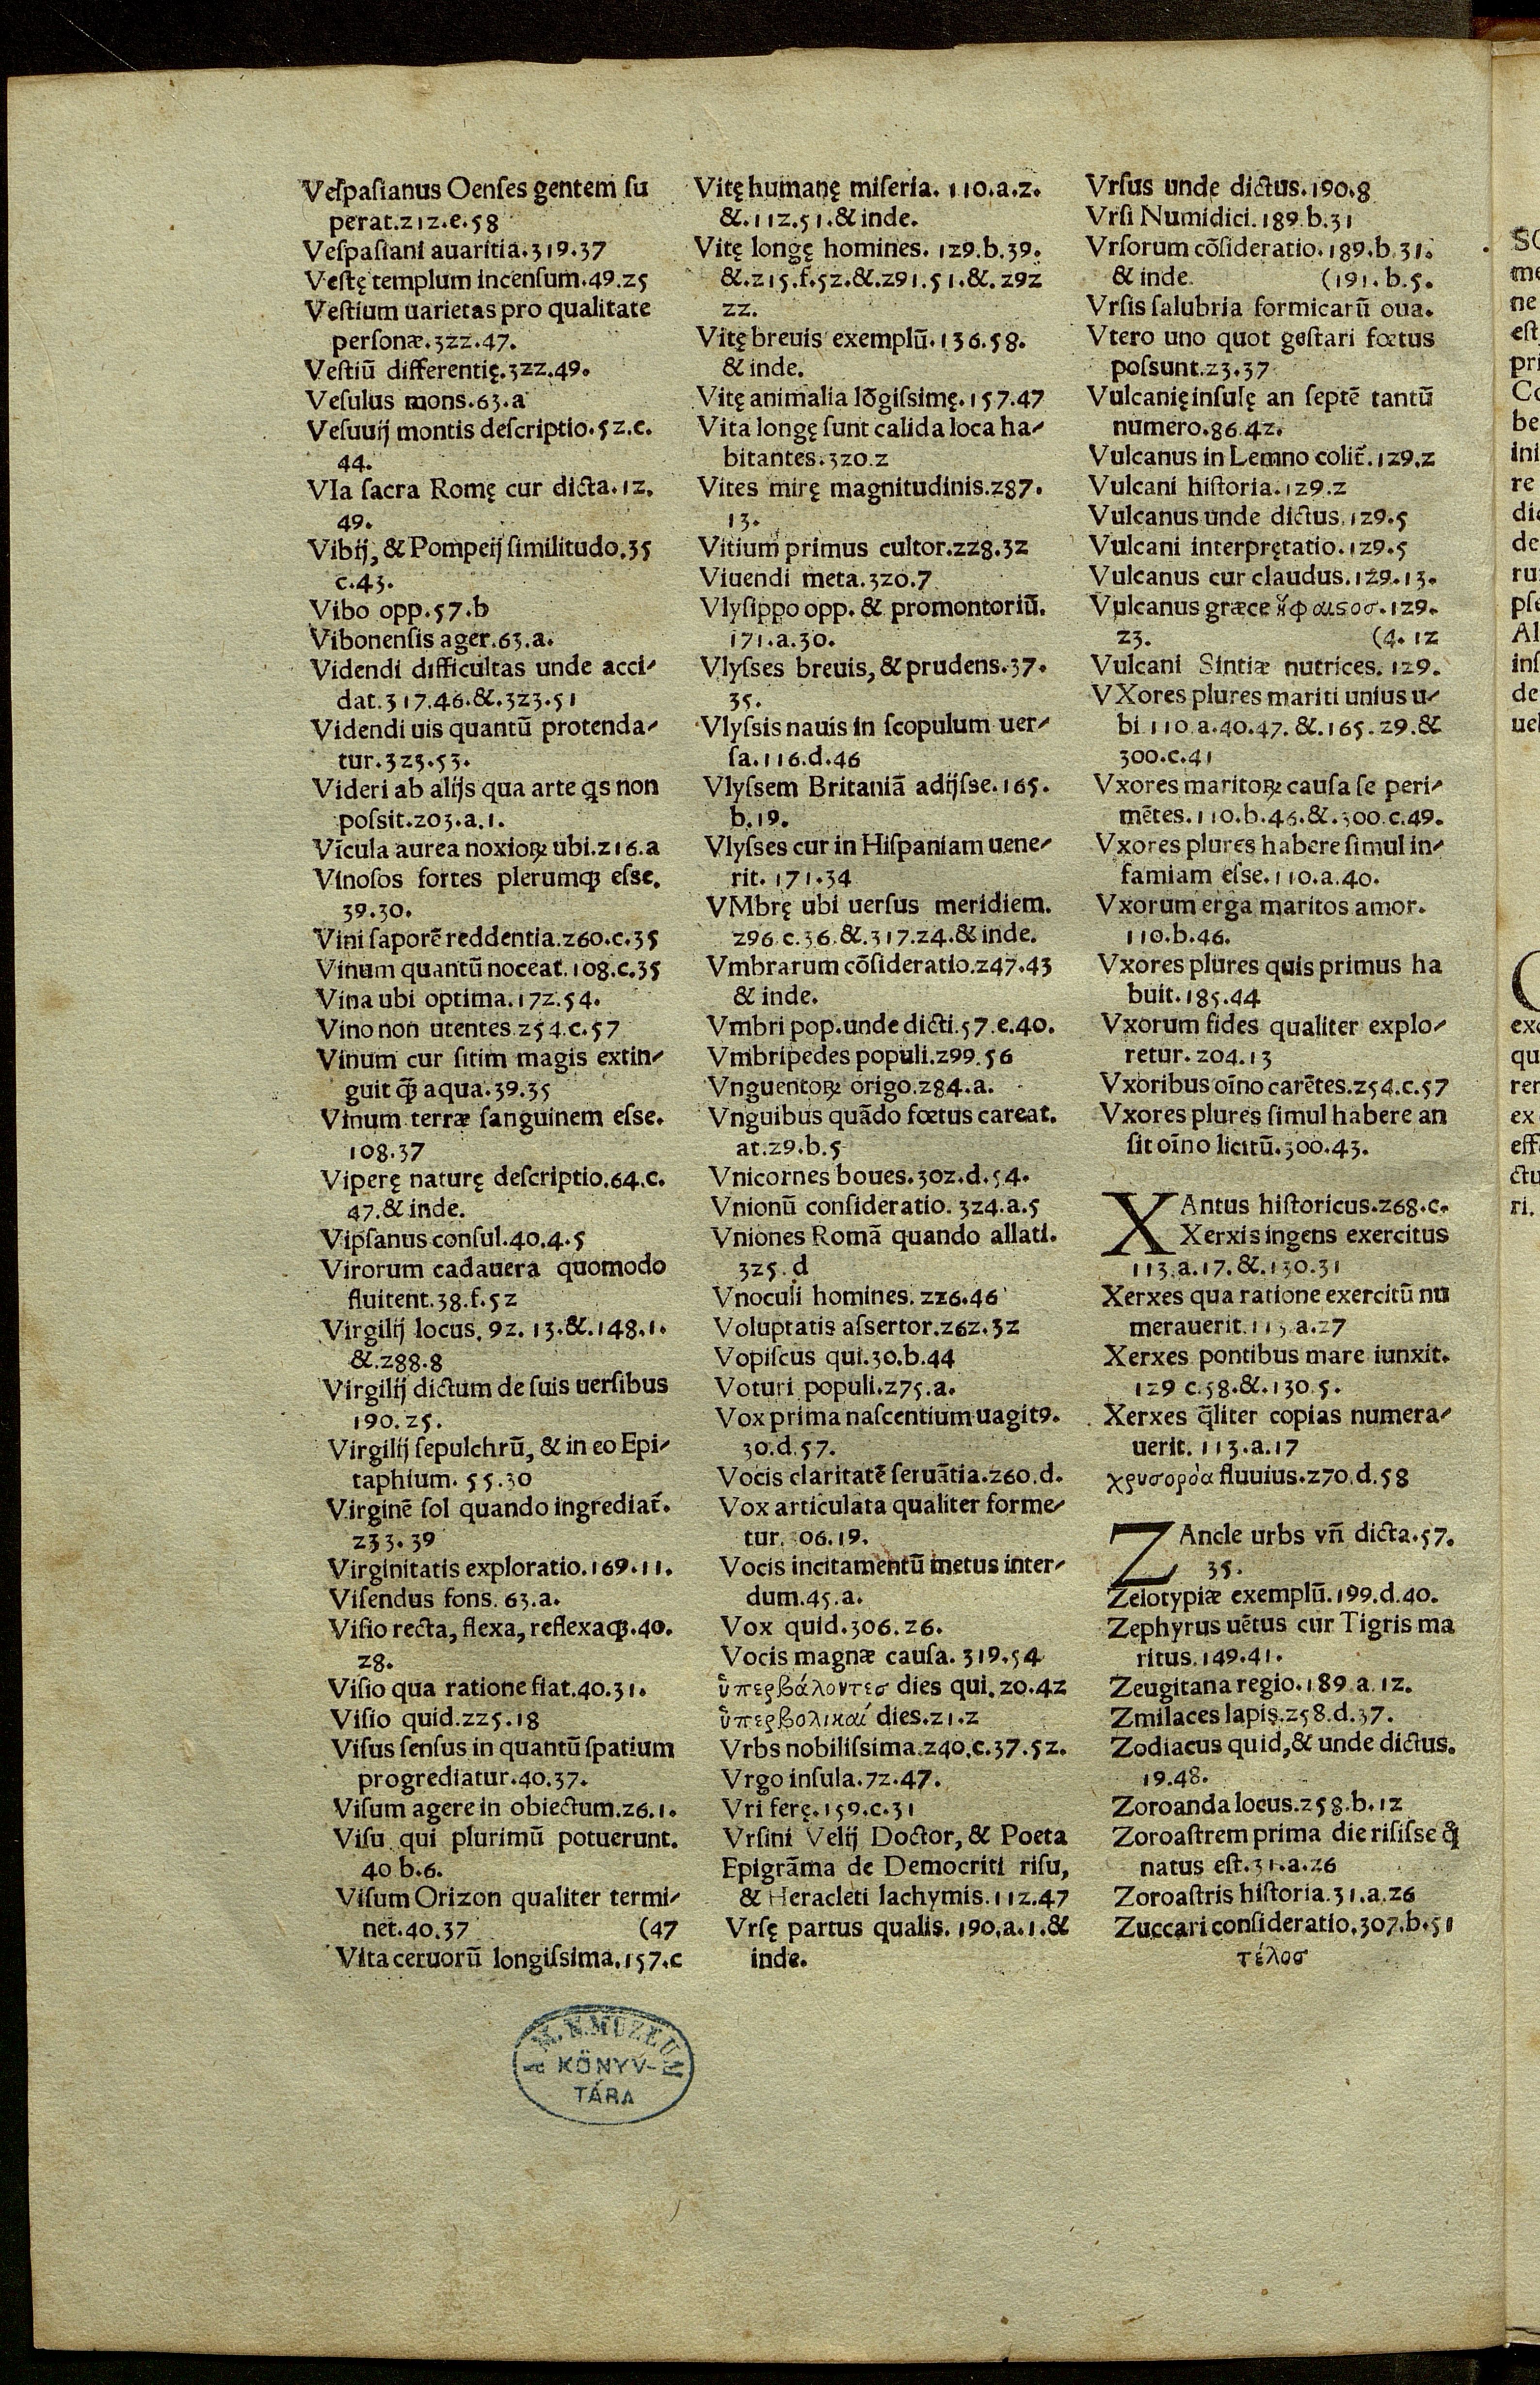 Veſpaſianus Oenſes gentem ſu
perat.212.e.58
Veſpaſiani auaritia.319.37
Veſtę templum incenſum.49.25
Veſtium uarietas pro qualitate
perſonæ.322.47.
Veſtiū differentię.322.49.
Veſulus mons.63.a
Veſuuij montis deſcriptio.52.c.
44.
VIa ſacra Romę cur dicta.12.
49.
Vibij, & Pompeij ſimilitudo.35
c.43.
Vibo opp.57.b
Vibonenſis ager.63.a.
Videndi difficultas unde acci-
dat.317.46.&.323.51
Videndi uis quantū protenda-
tur.323.53.
Videri ab alijs qua arte qs non
poſsit.203.a.1.
Vīcula aurea noxioꝝ ubi.216.a
Vinoſos fortes plerumqꝫ eſse.
39.30.
Vini ſaporē reddentia.260.c.35
Vinum quantū noceat.108.c.35
Vina ubi optima.172.54.
Vino non utentes.254.c.57
Vinum cur ſitim magis extin-
guit q̄ꝫ aqua.39.35
Vinum terræ ſanguinem eſse.
108.37
Viperę naturę deſcriptio.64.c.
47.& inde.
Vipſanus conſul.40.4.5
Virorum cadauera quomodo
fluitent.38.f.52
Virgilij locus.92.13.&.148.1.
&.288.8
Virgilij dictum de ſuis uerſibus
190.25.
Virgilij ſepulchrū, & in eo Epi-
taphium.55.30
Virginē ſol quando ingrediat̄.
233.39
Virginitatis exploratio.169.11.
Viſendus fons.63.a.
Viſio recta, flexa, reflexaqꝫ.40.
28.
Viſio qua ratione fiat.40.31.
Viſio quid.225.18
Viſus ſenſus in quantū ſpatium
progrediatur.40.37.
Viſum agere in obiectum.26.1.
Viſu qui plurimū potuerunt.
40 b.6.
Viſum Orizon qualiter termi-
net.40.37 (47
Vita ceruorū longiſsima.157.c
Vitę humanę miſeria.110.a.2.
&.112.51.& inde.
Vitę longę homines.129.b.39.
&.215.f.52.&.291.51.&.292
22.
Vitę breuis exemplū.136.58.
& inde.
Vitę animalia lōgiſsimę.157.47
Vita longę ſunt calida loca ha-
bitantes.320.2
Vites mirę magnitudinis.287.
13.
Vitium primus cultor.228.32
Viuendi meta.320.7
Vlyſippo opp. & promontoriū.
171.a.30.
Vlyſses breuis, & prudens.37.
35.
Vlyſsis nauis in ſcopulum uer-
ſa.116.d.46
Vlyſsem Britaniā adijſse.165.
b.19.
Vlyſses cur in Hiſpaniam uene-
rit.171.34
VMbrę ubi uerſus meridiem.
296.c.36.&.317.24.& inde.
Vmbrarum cōſideratio.247.43
& inde.
Vmbri pop.unde dicti.57.e.40.
Vmbripedes populi.299.56
Vnguentoꝝ origo.284.a.
Vnguibus quādo fœtus careat.
at.29.b.5
Vnicornes boues.302.d.54.
Vnionū conſideratio.324.a.5
Vniones Romā quando allati.
325.d
Vnoculi homines.226.46
Voluptatis aſsertor.262.32
Vopiſcus qui.30.b.44
Voturi populi.275.a.
Vox prima naſcentium uagit9.
30.d.57.
Vocis claritatē ſeruātia.260.d.
Vox articulata qualiter forme-
tur.306.19.
Vocis incitamentū metus inter-
dum.45.a.
Vox quid.306.26.
Vocis magnæ cauſa.319.54
ὑπερβάλοντεσ dies qui.20.42
ὑπερβολικαί dies.21.2
Vrbs nobiliſsima.240.c.37.52.
Vrgo inſula.72.47.
Vri ferę.159.c.31
Vrſini Velij Doctor, & Poeta
Epigrāma de Democriti riſu,
& Heracleti lachymis.112.47
Vrſę partus qualis.190.a.1.&
inde.
Vrſus unde dictus.190.8
Vrſi Numidici.189.b.31
Vrſorum cōſideratio.189.b.31.
& inde. (191.b.5.
Vrſis ſalubria formicarū oua.
Vtero uno quot geſtari fœtus
poſsunt.23.37
Vulcanię inſulę an ſeptē tantū
numero.86.42.
Vulcanus in Lemno colit̄.129.2
Vulcani hiſtoria.129.2
Vulcanus unde dictus.129.5
Vulcani interprętatio.129.5
Vulcanus cur claudus.129.13.
Vulcanus græce ἥφαιϛοσ.129.
23. (4.12
Vulcani Sintiæ nutrices.129.
VXores plures mariti unius u-
bi.110.a.40.47.&.165.29.&
300.c.41
Vxores maritoꝝ cauſa ſe peri-
mētes.110.b.46.&.300.c.49.
Vxores plures habere ſimul in-
famiam eſse.110.a.40.
Vxorum erga maritos amor.
110.b.46.
Vxores plures quis primus ha
buit.185.44
Vxorum fides qualiter explo-
retur.204.13
Vxoribus oīno carētes.254.c.57
Vxores plures ſimul habere an
ſit oīno licitū.300.43.
XAntus hiſtoricus.268.c.
Xerxis ingens exercitus
113.a.17.&.130.31
Xerxes qua ratione exercitū nu
merauerit.113.a.27
Xerxes pontibus mare iunxit.
129 c.58.&.130.5.
Xerxes q̄liter copias numera-
uerit.113.a.17
χρυσορόα fluuius.270.d.58
ZAncle urbs vñ dicta.57.
35.
Zelotypiæ exemplū.199.d.40.
Zephyrus uētus cur Tigris ma
ritus.149.41.
Zeugitana regio.189.a.12.
Zmilaces lapis.258.d.37.
Zodiacus quid, & unde dictus.
19.48.
Zoroanda locus.258.b.12
Zoroaſtrem prima die riſiſse q̄
natus eſt.31.a.26
Zoroaſtris hiſtoria.31.a.26
Zuccari conſideratio.307.b.51
τέλοσ
A M. N. MUZEUM
KÖNYV-
TÁRA